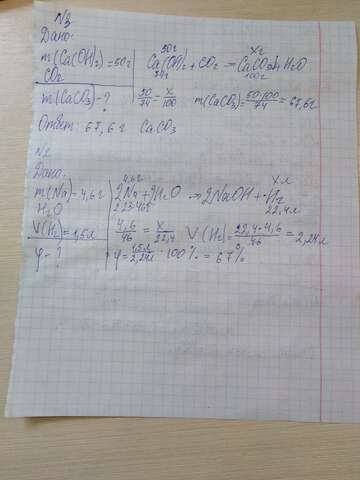 №3
Дано:
m(Ca(OH)₂)=50г
CO₂
m(CaCO₃)-?
50г xг
Ca(OH)₂+CO₂→CaCO₃↓+H₂O
74г 100г
50/74=x/100 m(CaCO₃)=50·100/74=67,6г
Ответ: 67,6г CaCO₃
Дано:
m(Na)=4,6г
H₂O
V(H₂)=1,5л
φ-?
4,6г xл
2Na+2H₂O→2NaOH+H₂
2·23=46г 22,4л
4,6/46=x/22,4 V(H₂)=22,4·4,6/46=2,24л
φ=1,5л/2,24л·100%=67%